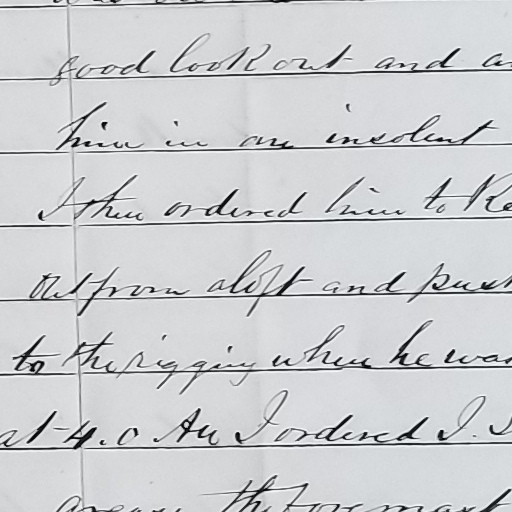 good look out and
him in an insolent
I then ordered him to
out from aloft and push
to the rigging when he was
at 4.0 AM I ordered J.
the foremast